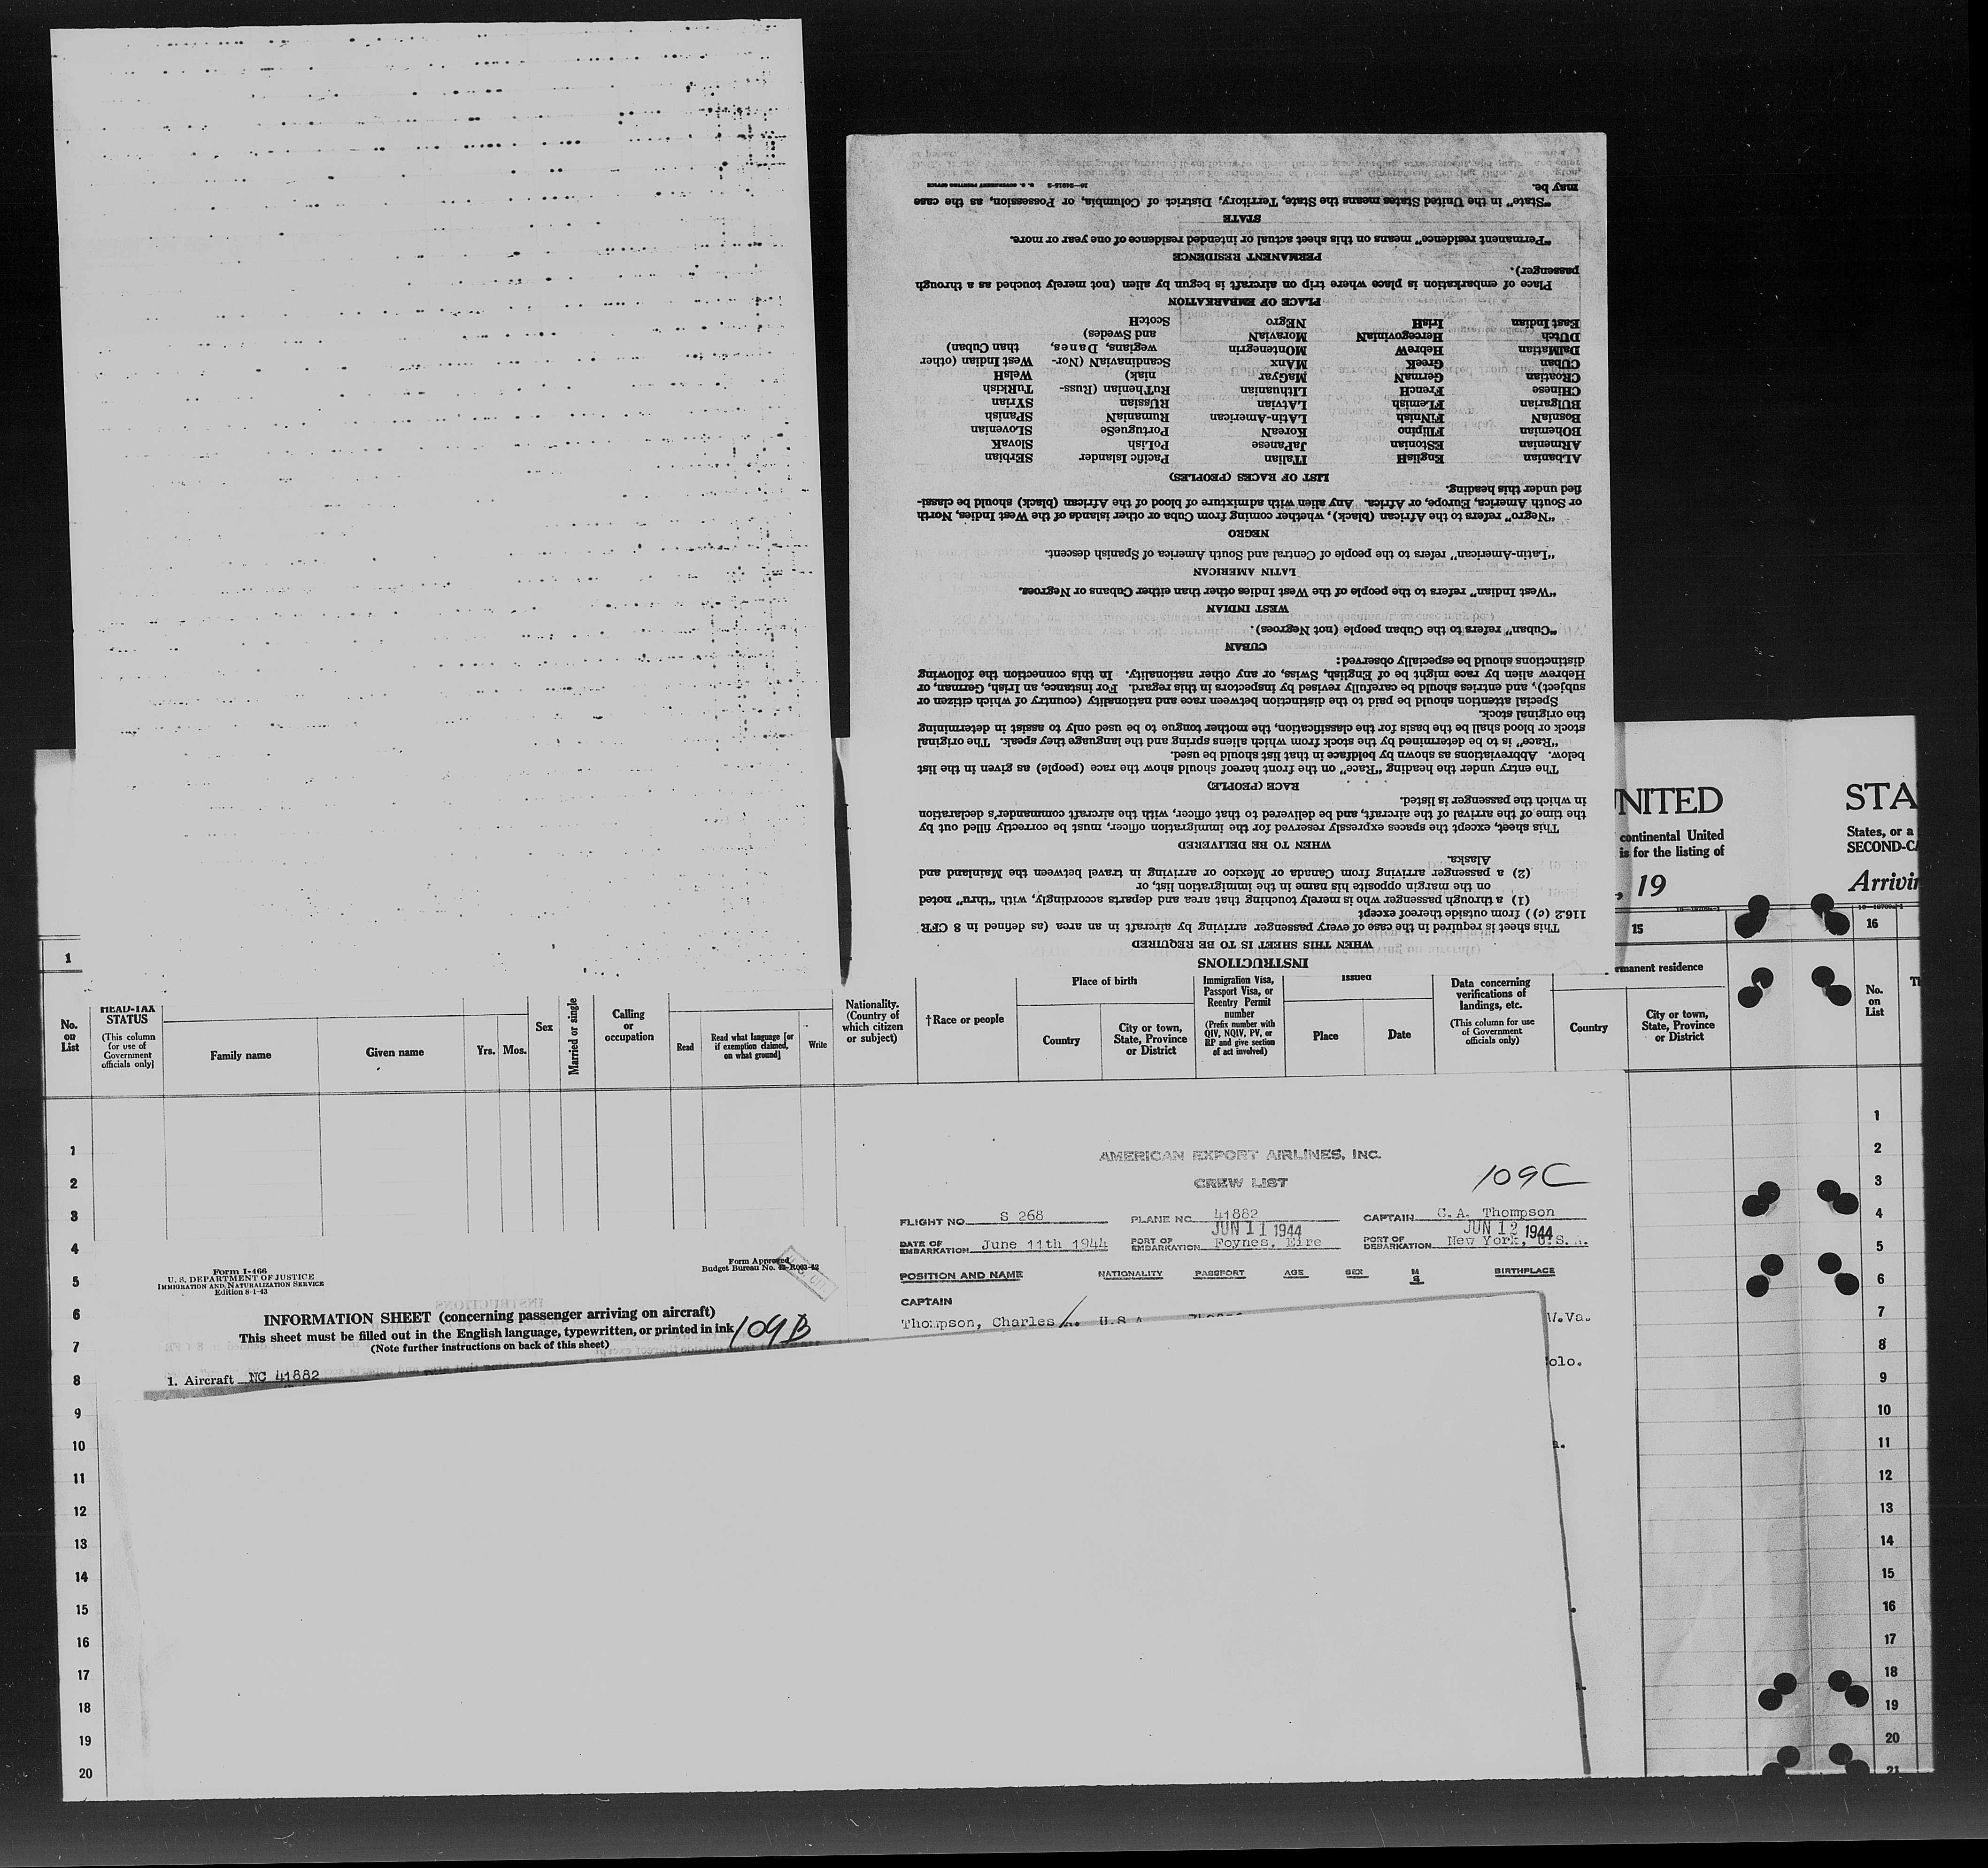 may be.
"State" in the United States means the State, Territory, District of Columbia, or Possession, as the case
STATE
"Permanent residence" means on this sheet actual or intended residence of one year or more.
PERMANENT RESIDENCE
passenger).
Place of embarkation is place where trip on aircraft is begun by alien (not merely touched as a through
PLACE OF EMBARKATION
INSTRUCTIONS
WHEN THIS SHEET IS TO BE REQUIRED
This sheet is required in the case of every passenger arriving by aircraft in an area (as defined in 8 CFR
116.2 (c)) from outside thereof except
(1) a through passenger who is merely touching that area and departs accordingly, with "thru" noted
on the margin opposite his name in the immigration list, or
(2) a passenger arriving from Canada or Mexico or arriving in travel between the Mainland and
Alaska.
WHEN TO BE DELIVERED
This sheet, except the spaces expressly reserved for the immigration officer, must be correctly filled out by
the time of the arrival of the aircraft, and be delivered to that officer, with the aircraft commander's declaration
in which the passenger is listed.
RACE (PEOPLE)
The entry under the heading "Race" on the front hereof should show the race (people) as given in the list
below. Abbreviations as shown by boldface in that list should be used.
"Race" is to be determined by the stock from which aliens spring and the language they speak. The original
stock or blood shall be the basis for the classification, the mother tongue to be used only to assist in determining
the original stock.
Special attention should be paid to the distinction between race and nationality (country of which citizen or
subject), and entries should be carefully revised by inspectors in this regard. For instance, an Irish, German, or
Hebrew alien by race might be of English, Swiss, or any other nationality. In this connection the following
distinctions should be especially observed:
CUBAN
"Cuban" refers to the Cuban people (not Negroes).
WEST INDIAN
"West Indian" refers to the people of the West Indies other than either Cubans or Negroes.
LATIN AMERICAN
"Latin-American" refers to the people of Central and South America of Spanish descent.
NEGRO
"Negro" refers to the African (black), whether coming from Cuba or other islands of the West Indies, North
or South America, Europe, or Africa. Any alien with admixture of blood of the African (black) should be classi-
fied under this heading.
LIST OF RACES (PEOPLES)
ALbanian EnglisH ITalian Pacific Islander SErbian
ARmenian EStonian JaPanese PoLish SlovaK
BOhemian FIlipino KoreaN PortugueSe SLOvenian
BosniaN FINnish LAtin-American RumaniaN SPanish
BUlgarian FLemish LAtvian RUssian SYrian
CHinese FrencH LIthuanian RuThenian (Russ- TuRkish
CRoatian GermaN MaGyar niak) WelsH
CUban GreeK MAnx ScandinaviaN (Nor- West Indian (other
DalMatian HebreW MOntenegrin wegians, Danes, than Cuban)
DUtch HercegoviniaN MoraviaN and Swedes)
East Indian IrisH NEgro ScotcH
NITED STA
continental United States, or a
is for the listing of SECOND-C
, 19 Arrivin
1 15 16
HEAD-TAX
STATUS
(This column
for use of
Government
officials only]
No.
on
List
Family name
Given name
Yrs. Mos.
Sex
Married or single
Calling
or
occupation
Read
Read what language [or
if exemption claimed,
on what ground]
Write
Nationality.
(Country of
which citizen
or subject)
†Race or people
Place of birth
Country
City or town,
State, Province
or District
Immigration Visa,
Passport Visa, or
Reentry Permit
number
(Prefix number with
QIV, NQIV, PV, or
RP and give section
of act involved)
Issued
Place
Date
Data concerning
verifications of
landings, etc.
(This column for use
of Government
officials only)
rmanent residence
Country
City or town,
State, Province
or District
No.
on
List
1
2
3
4
5
6
7
8
9
10
11
12
13
14
15
16
17
18
19
20
Form I-466
U. S. DEPARTMENT OF JUSTICE
IMMIGRATION AND NATURALIZATION SERVICE
Edition 8-1-43
Form Approved
Budget Bureau No.
INFORMATION SHEET (concerning passenger arriving on aircraft)
This sheet must be filled out in the English language, typewritten, or printed in ink
109B
(Note further instructions on back of this sheet)
1. Aircraft NC 41882
AMERICAN EXPORT AIRLINES, INC.
CREW LIST
109C
FLIGHT NO S 268 PLANE NC 41882 CAPTAIN C.A. Thompson
JUN 11 1944 JUN 12 1944
DATE OF EMBARKATION June 11th 1944 PORT OF EMBARKATION Foynes, Eire PORT OF DEBARKATION New York, U.S.A.
POSITION AND NAME NATIONALITY PASSPORT AGE SEX M S BIRTHPLACE
CAPTAIN
Thompson, Charles A. U.S.A W.Va.
olo.
a.
1
2
3
4
5
6
7
8
9
10
11
12
13
14
15
16
17
18
19
20
21